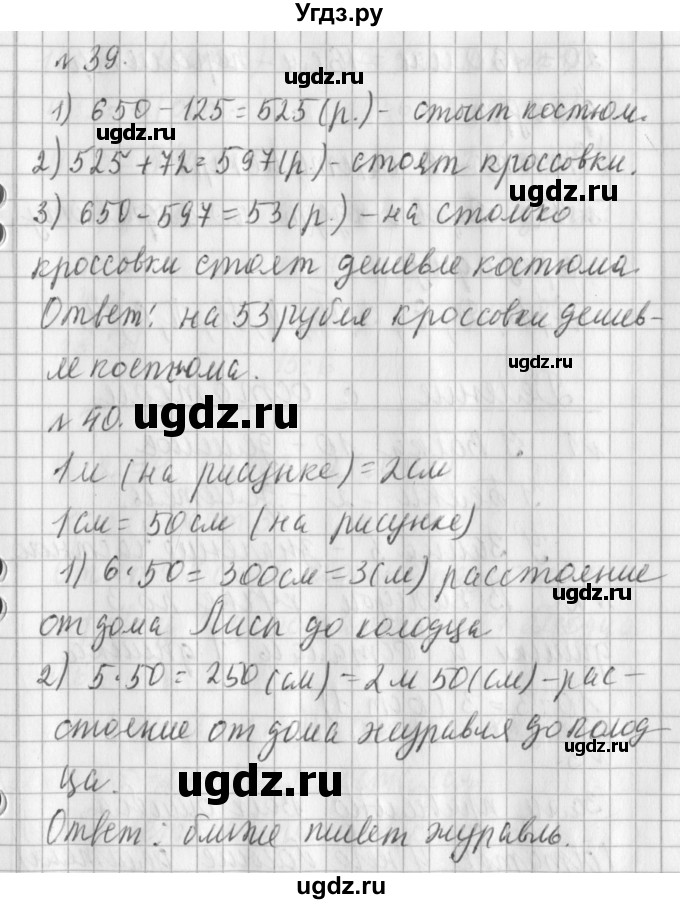 Угдз.ру
№ 39.
1) 650 - 125 = 525 (р.) - стоит костюм.
ugdz.ru
2) 525 + 72 = 597 (р.) - стоят кроссовки.
ugdz.ru
ugdz.ru
3) 650 - 597 = 53 (р.) - на столько
кроссовки стоят дешевле костюма
Ответ: на 53 рубля кроссовки дешев-
ugdz.ru
ле костюма.
ugdz.ru
№ 40.
1 м (на рисунке) = 2 см
1 см = 50 см (на рисунке)
1) 6 · 50 = 300 см = 3 (м) расстояние
ugdz.ru
от дома Лисы до колодца
2) 5 · 50 = 250 (см) = 2 м 50 (см) - рас-
стояние от дома журавля до колод-
ugdz.ru
ца.
ugdz.ru
Ответ: ближе живет журавль.
ugdz.ru
ugdz.ru